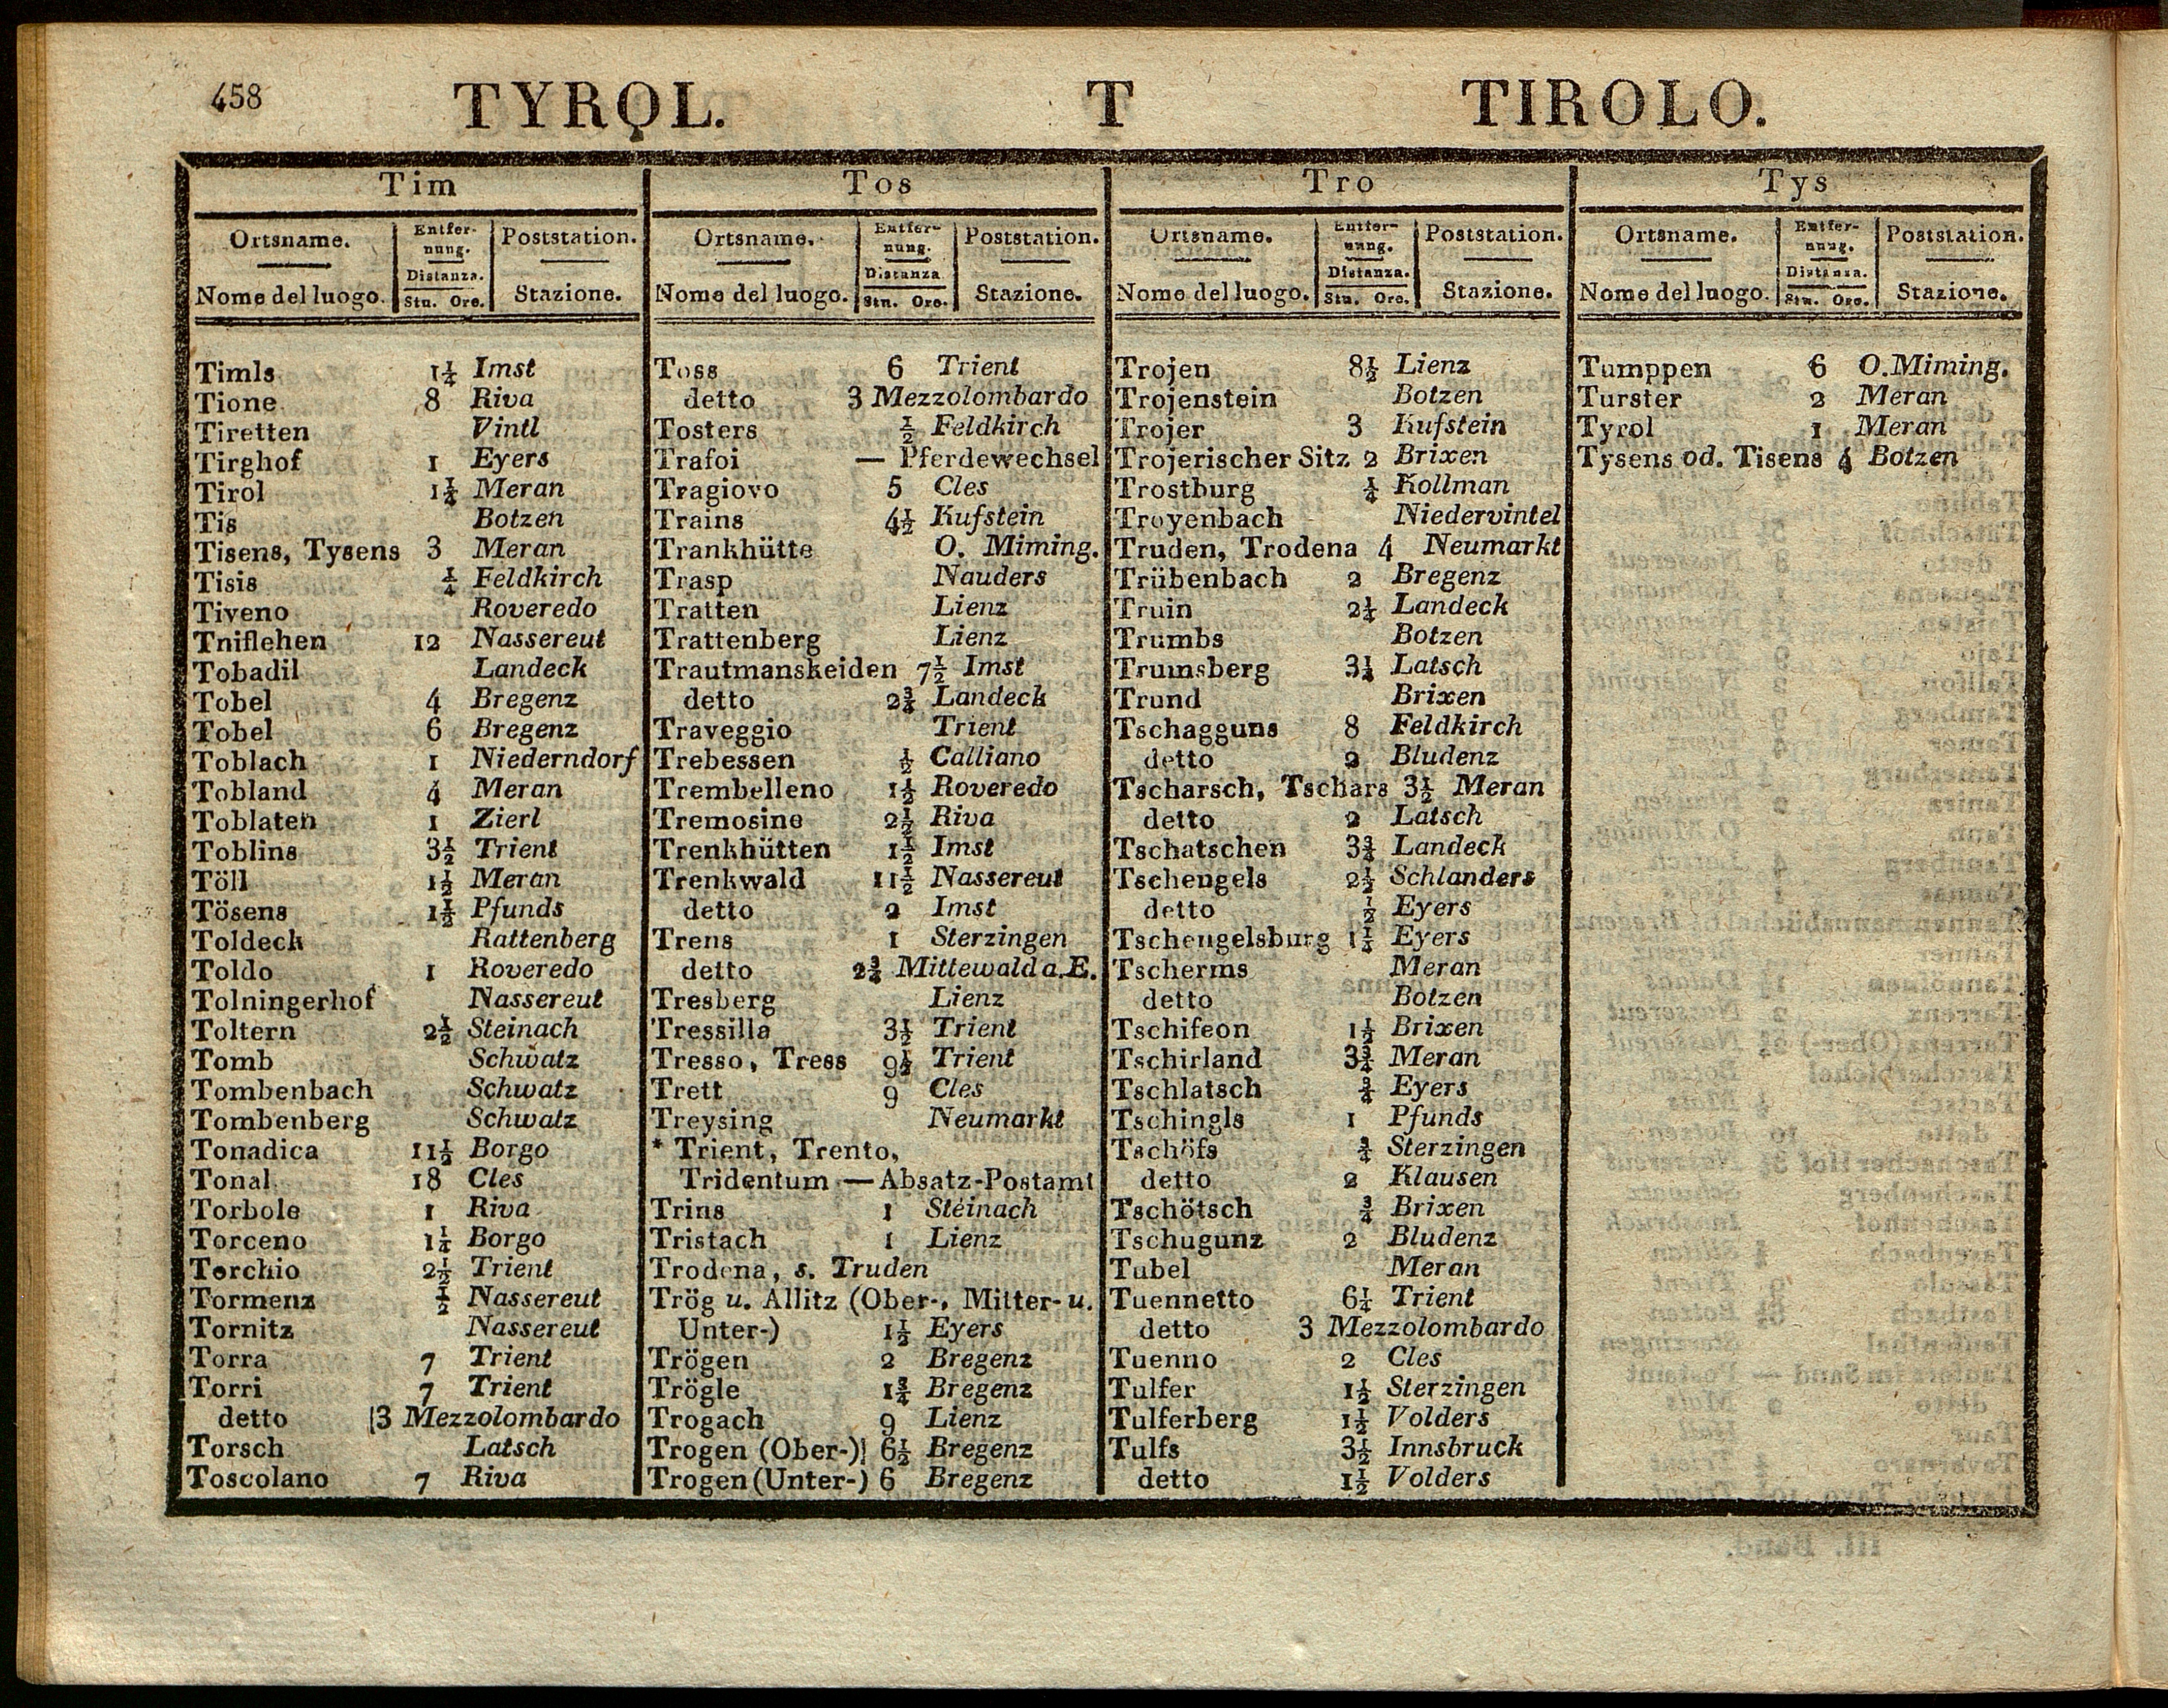 458 TYROL. T TIROLO.
Tim
Ortsname. Entfernung. Poststation.
Nome del luogo. Distanza. Stn. Ore. Stazione.
Timls 1¼ Imst
Tione 8 Riva
Tiretten Vintl
Tirghof 1 Eyers
Tirol 1¼ Meran
Tis Botzen
Tisens, Tysens 3 Meran
Tisis ¼ Feldkirch
Tiveno Roveredo
Tniflehen 12 Nassereut
Tobadil Landeck
Tobel 4 Bregenz
Tobel 6 Bregenz
Toblach 1 Niederndorf
Tobland 4 Meran
Toblaten 1 Zierl
Toblins 3½ Trient
Töll 1½ Meran
Tösens 1½ Pfunds
Toldeck Rattenberg
Toldo 1 Roveredo
Tolningerhof Nassereut
Toltern 2½ Steinach
Tomb Schwatz
Tombenbach Schwatz
Tombenberg Schwatz
Tonadica 11½ Borgo
Tonal 18 Cles
Torbole 1 Riva
Torceno 1¼ Borgo
Torchio 2½ Trient
Tormenz ½ Nassereut
Tornitz Nassereut
Torra 7 Trient
Torri 7 Trient
detto 3 Mezzolombardo
Torsch Latsch
Toscolano 7 Riva
Tos
Ortsname. Entfernung. Poststation.
Nome del luogo. Distanza Stn. Ore. Stazione.
Toss 6 Trient
detto 3 Mezzolombardo
Tosters ½ Feldkirch
Trafoi — Pferdewechsel
Tragiovo 5 Cles
Trains 4½ Kufstein
Trankhütte O. Miming.
Trasp Nauders
Tratten Lienz
Trattenberg Lienz
Trautmanskeiden 7½ Imst
detto 2¾ Landeck
Traveggio Trient
Trebessen ½ Calliano
Trembelleno 1½ Roveredo
Tremosine 2½ Riva
Trenkhütten 1½ Imst
Trenkwald 11½ Nassereut
detto 2 Imst
Trens 1 Sterzingen
detto 2¾ Mittewald a. E.
Tresberg Lienz
Tressilla 3½ Trient
Tresso, Tress 9½ Trient
Trett 9 Cles
Treysing Neumarkt
* Trient, Trento,
Tridentum — Absatz-Postamt
Trins 1 Steinach
Tristach 1 Lienz
Trodena, s. Truden
Trög u. Allitz (Ober-, Mitter- u.
Unter-) 1½ Eyers
Trögen 2 Bregenz
Trögle 1¾ Bregenz
Trogach 9 Lienz
Trogen (Ober-) 6½ Bregenz
Trogen (Unter-) 6 Bregenz
Tro
Ortsname. Entfernung. Poststation.
Nome del luogo. Distanza. Stn. Ore. Stazione.
Trojen 8½ Lienz
Trojenstein Botzen
Trojer 3 Kufstein
Trojerischer Sitz 2 Brixen
Trostburg ¼ Kollman
Troyenbach Niedervintel
Truden, Trodena 4 Neumarkt
Trübenbach 2 Bregenz
Truin 2¼ Landeck
Trumbs Botzen
Trumsberg 3¼ Latsch
Trund Brixen
Tschagguns 8 Feldkirch
detto 2 Bludenz
Tscharsch, Tschars 3½ Meran
detto 2 Latsch
Tschatschen 3¾ Landeck
Tschengels 2½ Schlanders
detto ½ Eyers
Tschengelsburg 1½ Eyers
Tscherms Meran
detto Botzen
Tschifeon 1½ Brixen
Tschirland 3¾ Meran
Tschlatsch ¾ Eyers
Tschingls 1 Pfunds
Tschöfs ¾ Sterzingen
detto 2 Klausen
Tschötsch ¾ Brixen
Tschugunz 2 Bludenz
Tubel Meran
Tuennetto 6¼ Trient
detto 3 Mezzolombardo
Tuenno 2 Cles
Tulfer 1½ Sterzingen
Tulferberg 1½ Volders
Tulfs 3½ Innsbruck
detto 1½ Volders
Tys
Ortsname. Entfernung. Poststation.
Nome del luogo. Distanza. Stn. Ore. Stazione.
Tumppen 6 O. Miming.
Turster 2 Meran
Tyrol 1 Meran
Tysens od. Tisens 4 Botzen